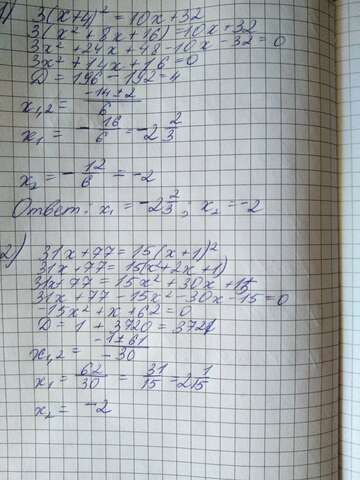 1) 3(x+4)² = 10x+32
3(x² + 8x + 16) = 10x + 32
3x² + 24x + 48 - 10x - 32 = 0
3x² + 14x + 16 = 0
D = 196 - 192 = 4
x₁,₂ = (-14±2)/6
x₁ = -16/6 = -2 2/3
x₂ = -12/6 = -2
Ответ: x₁ = -2 2/3; x₂ = -2
2) 31x+77 = 15(x+1)²
31x+77 = 15(x+2x+1)
31x+77 = 15x² + 30x + 15
31x + 77 - 15x² - 30x - 15 = 0
-15x² + x + 62 = 0
D = 1 + 3720 = 3721
x₁,₂ = (-1±61)/-30
x₁ = 62/30 = 31/15 = 2 1/15
x₂ = -2